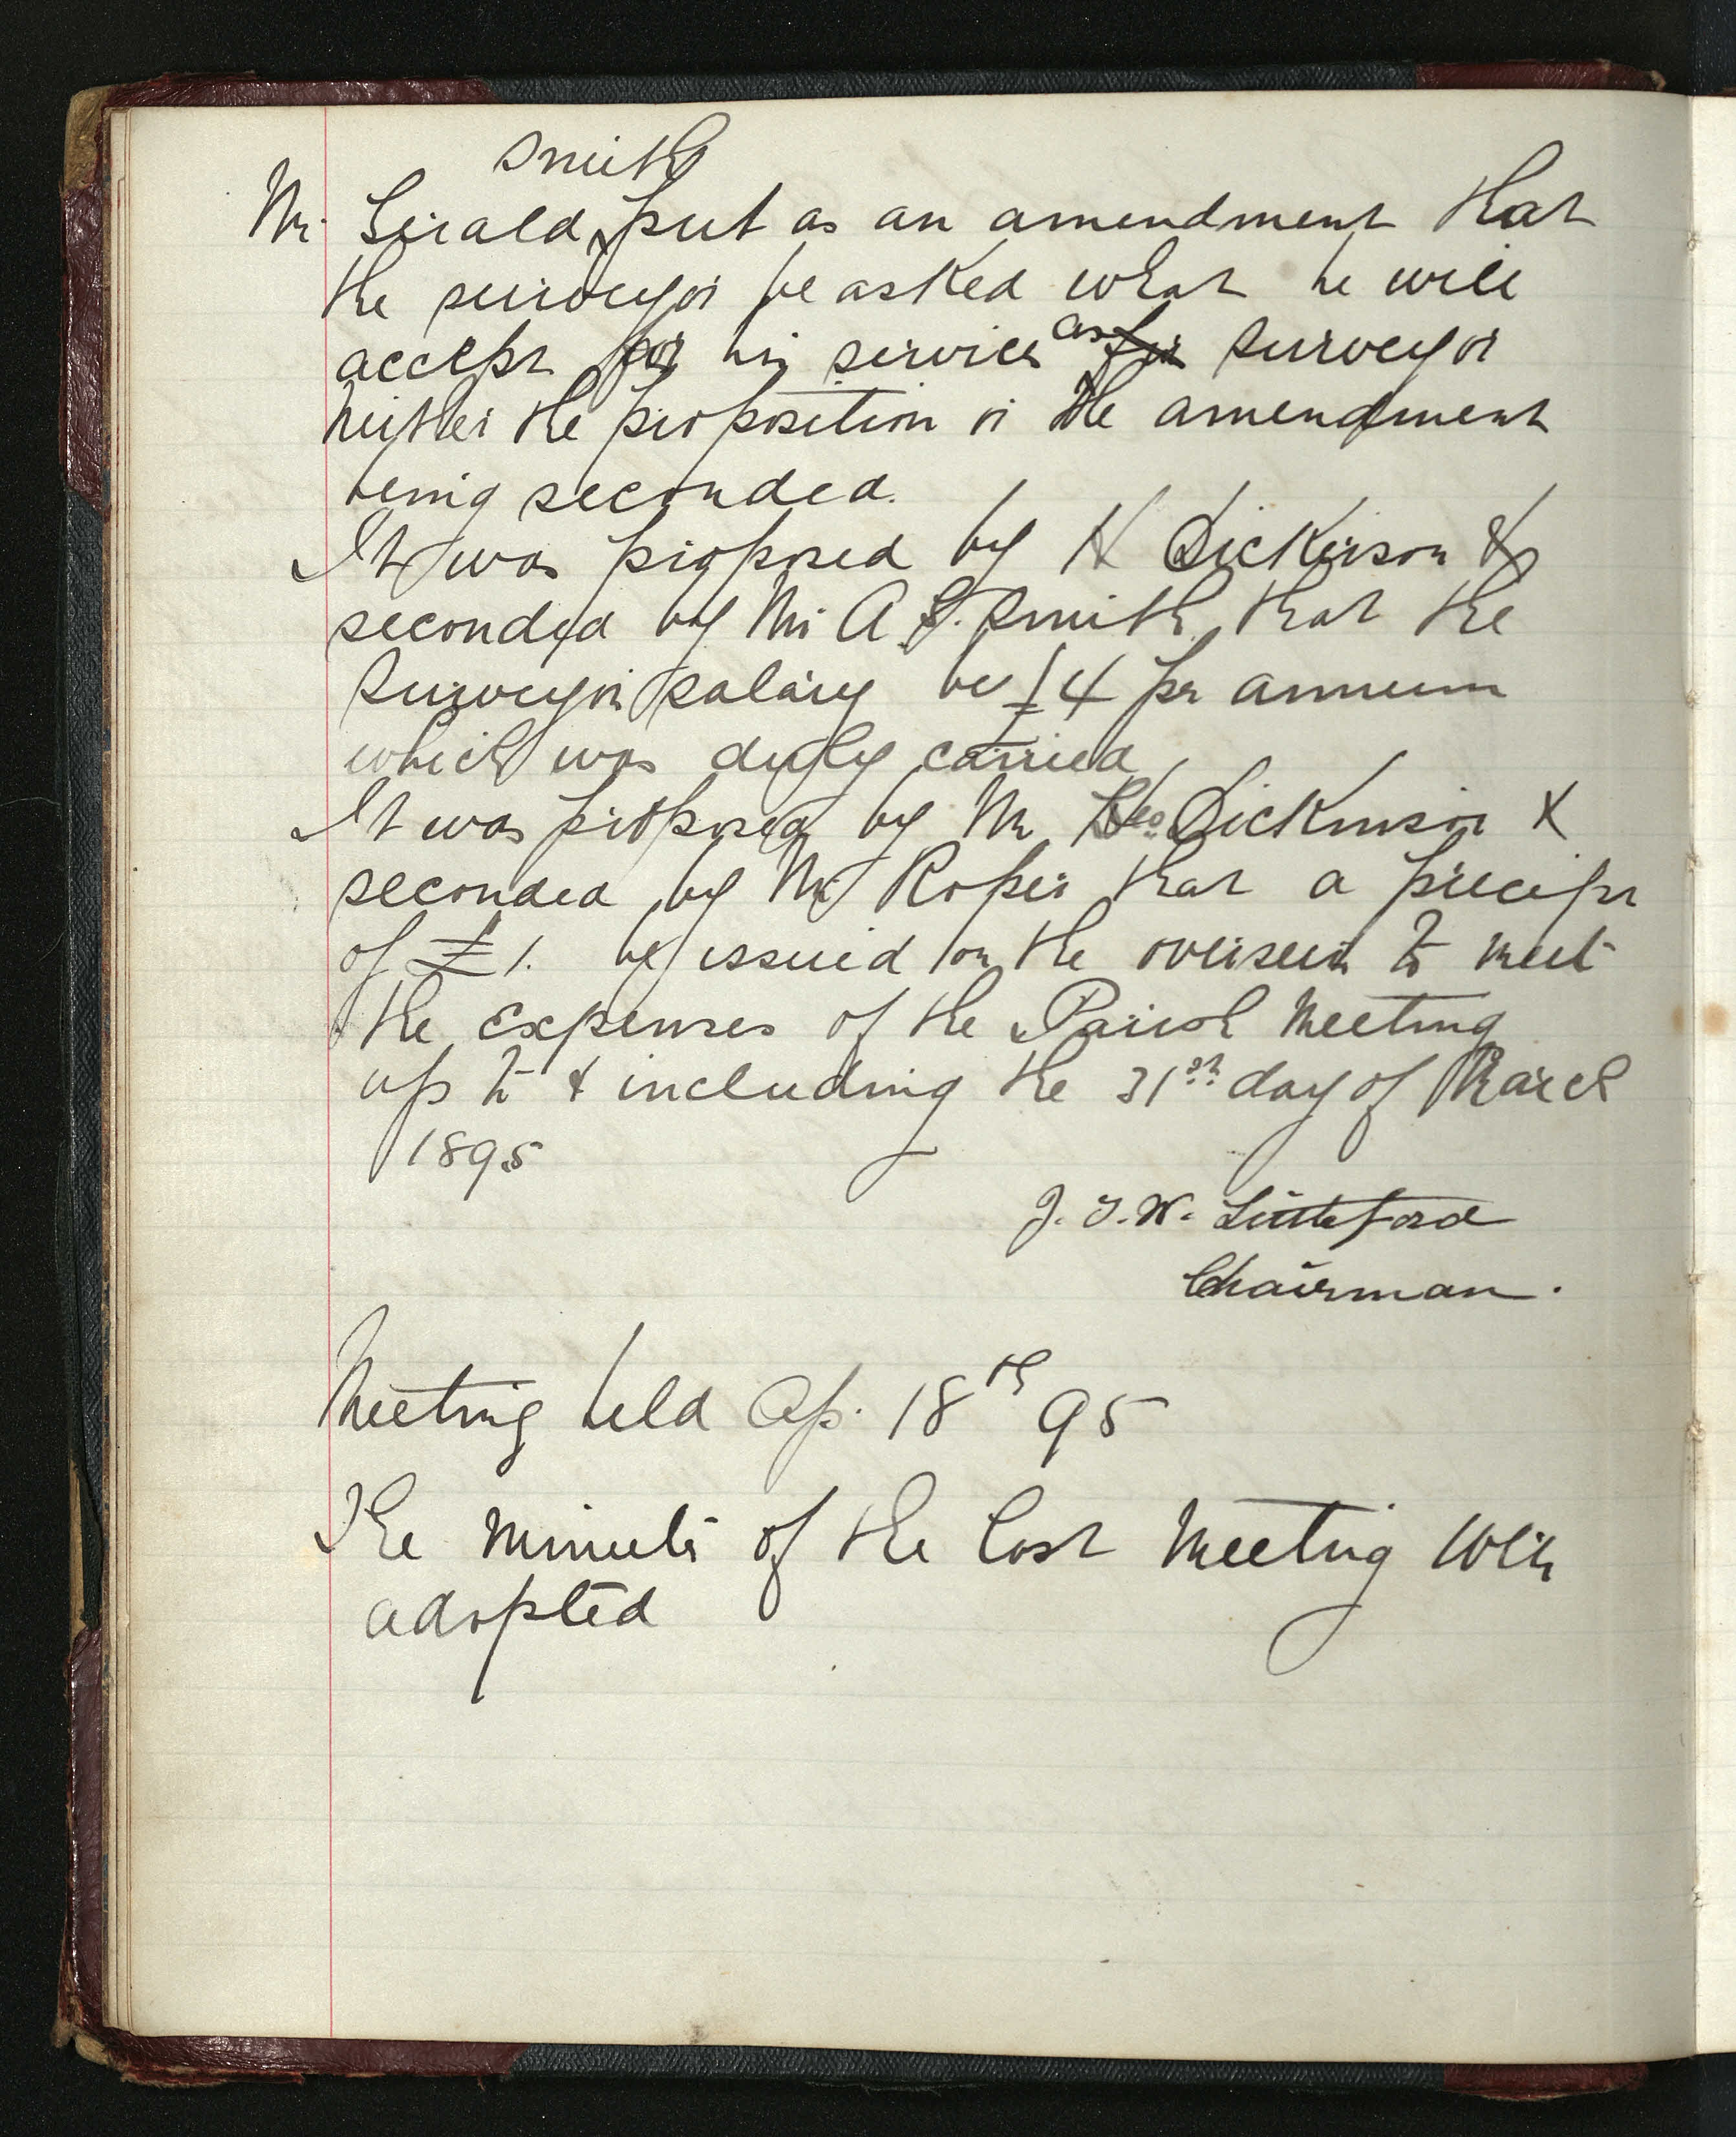 Smith
Mr Girald put as an amendment that
the surveyor be asked what he will
accept for his services as for surveyor
neither the proposition or the amendment
being seconded.
It was proposed by H Dickinson &
seconded by Mr A G. Smith that the
surveyor salary be £4 pr annum
which was duly carried
It was proposed by Mr Dickinson &
seconded by Mr Roper that a precept
of £1. be issued on the overseers to meet
the expenses of the Parish Meeting
up to & including the 31st day of March
1895
J. T. W. Littleford
Chairman.
Meeting held Ap. 18th 95
The minutes of the last meeting were
adopted